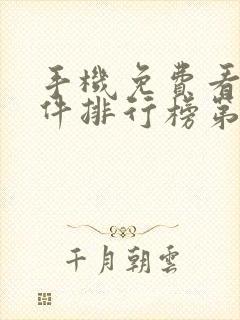 手機免費看
件排行榜第
千月朝雲